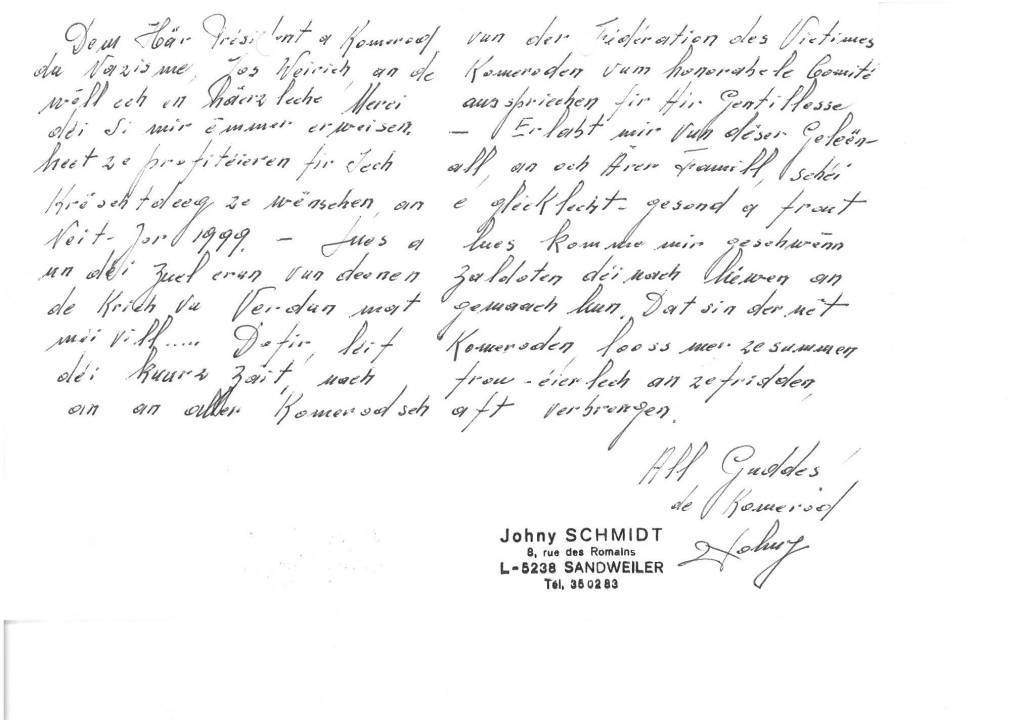 Dem Här Président a Komerod, vun der Fédération des Victimes
du Nazisme, Jos Weirich, an de Komeroden vum honorabele Comité
wëll ech en häerzleche Merci ausspriechen fir Hir Gentillesse
déi Si mir ëmmer erweisen. — Erlabt mir vun dëser Geleën-
heet ze profitéieren fir Iech all, an och Ärer Famill, schéi
Krëschtdeeg ze wënschen, an e glécklecht - gesond a frout
Neit-Jor 1999. — Lues a lues komme mir geschwënn
un déi Zuel erun vun deenen Zaldoten déi nach liewen an
de Krich vu Verdun mat gemaach hun. Dat sin der nët
méi vill..... Dofir, léif Komeroden, looss mer zesummen
déi kuurz Zäit, nach frou - éierlech an zefridden,
an an aller Komerodschaft verbrengen.
All Guddes
de Komerod
Johny
Johny SCHMIDT
8, rue des Romains
L-5238 SANDWEILER
Tél, 350283